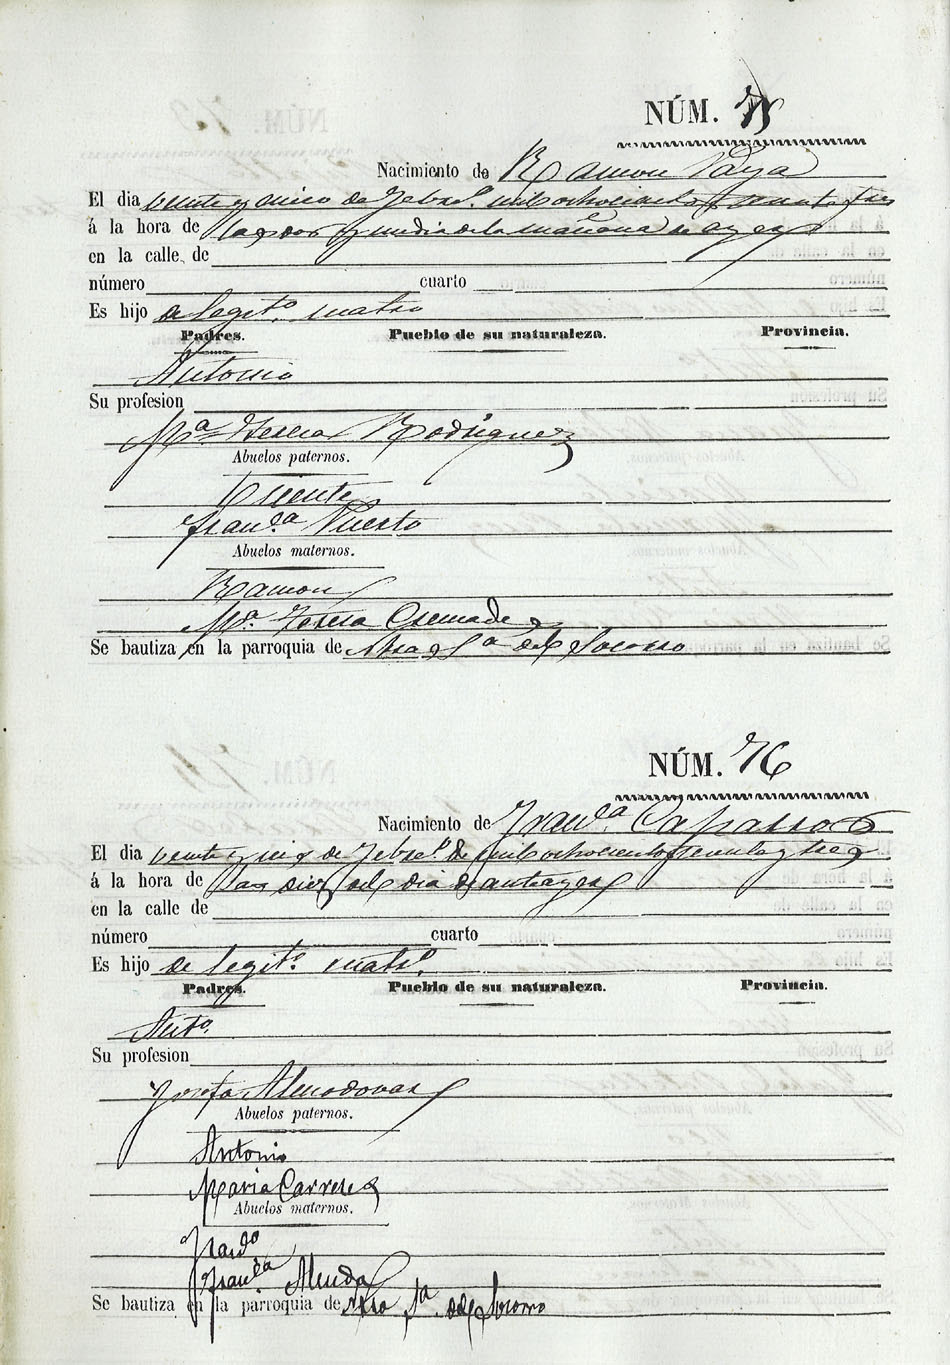 NÚM. 75
Nacimiento de Ramon Paya
El dia veinte y cinco de Febro. mil ochocientos setenta y tres
á la hora de las dos y media de la mañana de ayer
en la calle de
número cuarto
Es hijo de legito. matro
Padres. Pueblo de su naturaleza. Provincia.
Antonio
Su profesion
Ma. Teresa Rodriguez
Abuelos paternos.
Vicente
Franca. Puerto
Abuelos maternos.
Ramon
Ma. Teresa Quemada
Se bautiza en la parroquia de Ntra Sa del Socorro
NÚM. 76
Nacimiento de Franca Caparros
El dia veinte y seis de Febro. de mil ochocientos setenta y tres
á la hora de las diez del dia de antayer
en la calle de
número cuarto
Es hijo de legito. matro.
Padres. Pueblo de su naturaleza. Provincia.
Anto.
Su profesion
Josefa Almodovar
Abuelos paternos.
Antonio
Maria Carreres
Abuelos maternos.
Franca
Se bautiza en la parroquia de Ntra Sa. del Socorro